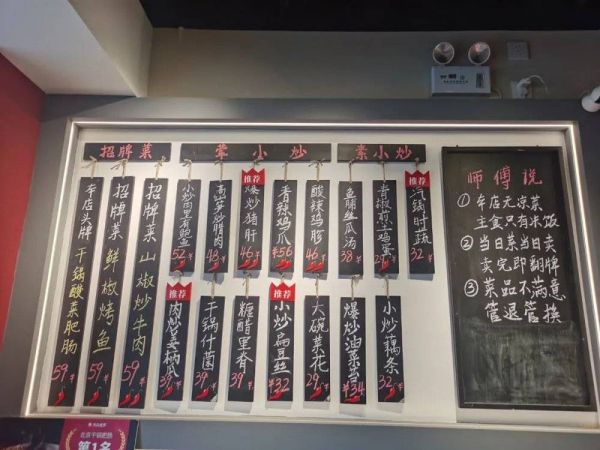 招牌菜
荤小炒
素小炒
本店头牌 干锅酸菜肥肠 59
招牌菜 鲜椒烤鱼 59
招牌菜 山椒炒牛肉 59
小炒肉里有鲍鱼 52
高笋炒腊肉 48
推荐
爆炒猪肝 46
香辣鸡爪 ¥56
酸辣鸡胗 46
丝瓜汤 38
青椒煎土鸡蛋 29
推荐
汽锅时蔬 32
推荐
肉炒姜柄瓜 39
干锅什菌 39
糖醋里脊 39
推荐
小炒扁豆丝 ¥32
大碗菜花 29
爆炒油菜 ¥34
小炒藕条 32
师傅说
① 本店无凉菜
主食只有米饭
② 当日菜当日卖
卖完即翻牌
③ 菜品不满意
管退管换
北京干锅肥肠
第1名